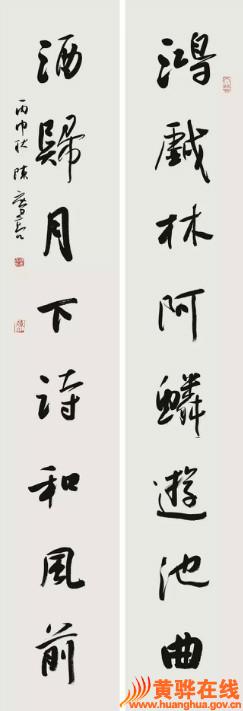 鴻戲林阿鱗遊池曲
酒歸月下詩和風前
丙申秋陳
黄骅在线
www.huanghua.gov.cn